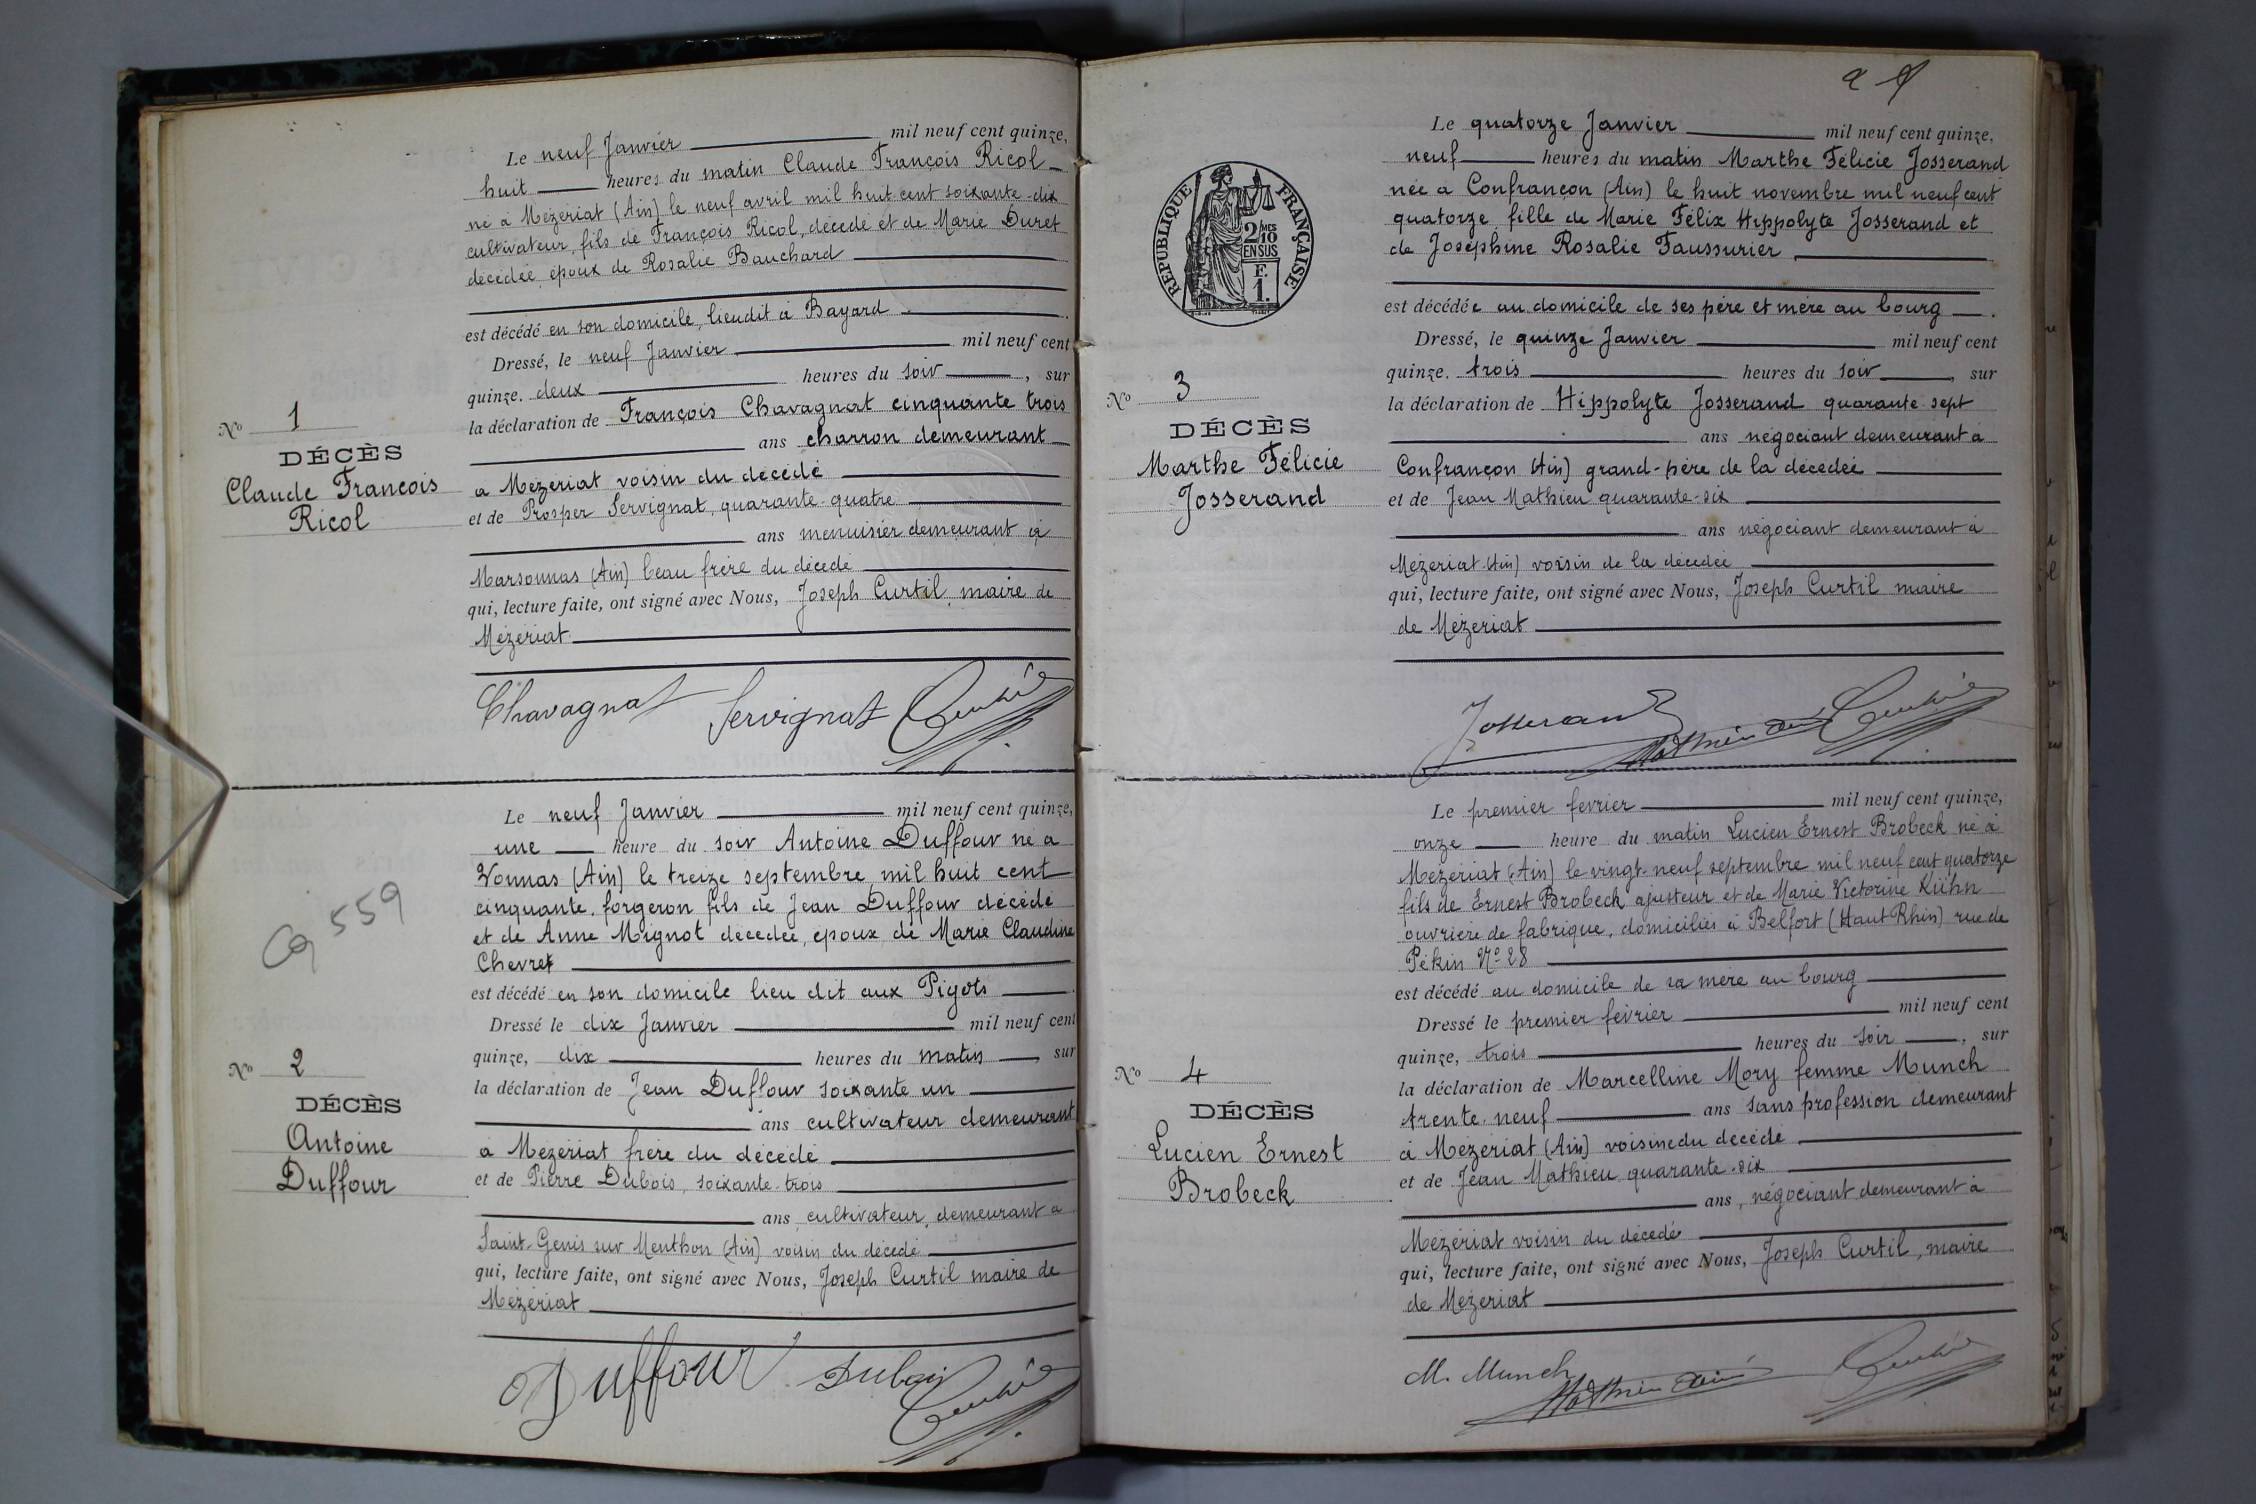 Le neuf Janvier mil neuf cent quinze,
huit heures du matin Claude François Ricol
né à Mézériat (Ain) le neuf avril mil huit cent soixante-dix
cultivateur, fils de François Ricol, décédé et de Marie Duret
décédée, époux de Rosalie Bauchard
est décédé en son domicile, lieudit à Bayard
Dressé, le neuf Janvier mil neuf cent
quinze, deux heures du soir, sur
la déclaration de François Chavagnat cinquante trois
ans charron demeurant
à Mézériat voisin du décédé
et de Prosper Servignat, quarante-quatre
ans menuisier demeurant à
Marsonnas (Ain) beau frère du décédé
qui, lecture faite, ont signé avec Nous, Joseph Curtil, maire de
Mézériat
Nº 1
DÉCÈS
Claude François
Ricol
Chavagnat Servignat Curtil
Le neuf Janvier mil neuf cent quinze,
une heure du soir Antoine Duffour né à
Vonnas (Ain) le treize septembre mil huit cent
cinquante, forgeron fils de Jean Duffour décédé
et de Anne Mignot décédée, époux de Marie Claudine
Chevret
est décédé en son domicile lieu dit aux Pigots
Dressé le dix Janvier mil neuf cent
quinze, dix heures du matin, sur
la déclaration de Jean Duffour soixante un
ans cultivateur demeurant
à Mézériat frère du décédé
et de Pierre Dubois, soixante-trois
ans cultivateur, demeurant à
Saint-Genis sur Menthon (Ain) voisin du décédé
qui, lecture faite, ont signé avec Nous, Joseph Curtil maire de
Mézériat
559
Nº 2
DÉCÈS
Antoine
Duffour
Duffour Dubois Curtil
RÉPUBLIQUE FRANÇAISE
2/10 MES
EN SUS
F.
1.
Le quatorze Janvier mil neuf cent quinze,
neuf heures du matin Marthe Félicie Josserand
née à Confrançon (Ain) le huit novembre mil neuf cent
quatorze, fille de Marie Félix Hippolyte Josserand et
de Joséphine Rosalie Faussurier,
est décédée au domicile de ses père et mère au bourg.
Dressé, le quinze Janvier mil neuf cent
quinze, trois heures du soir, sur
la déclaration de Hippolyte Josserand quarante-sept
ans négociant demeurant à
Confrançon (Ain) grand-père de la décédée
et de Jean Mathieu quarante-six
ans négociant demeurant à
Mézériat (Ain) voisin de la décédée
qui, lecture faite, ont signé avec Nous, Joseph Curtil maire
de Mézériat
Nº 3
DÉCÈS
Marthe Félicie
Josserand
Josserand Mathieu aîné Curtil
Le premier février mil neuf cent quinze,
onze heure du matin Lucien Ernest Brobeck né à
Mézériat (Ain) le vingt-neuf septembre mil neuf cent quatorze
fils de Ernest Brobeck ajusteur et de Marie Victorine Kühn
ouvrière de fabrique, domiciliés à Belfort (Haut Rhin) rue de
Pékin Nº 28
est décédé au domicile de sa mère au bourg
Dressé le premier février mil neuf cent
quinze, trois heures du soir, sur
la déclaration de Marcelline Mory femme Munch
trente-neuf ans sans profession demeurant
à Mézériat (Ain) voisine du décédé
et de Jean Mathieu quarante-six
ans, négociant demeurant à
Mézériat voisin du décédé
qui, lecture faite, ont signé avec Nous, Joseph Curtil, maire
de Mézériat
Nº 4
DÉCÈS
Lucien Ernest
Brobeck
M. Munch Mathieu aîné Curtil